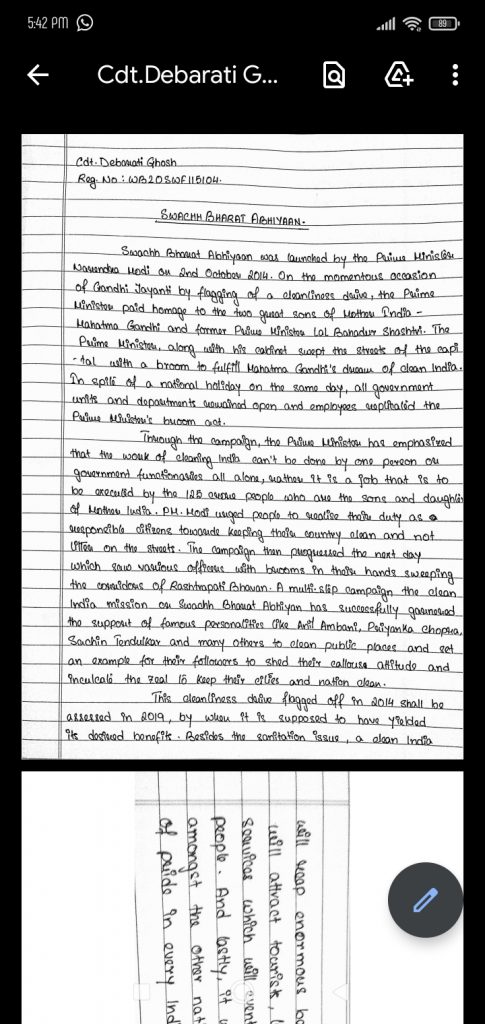 5:42 PM
89
Cdt.Debarati G...
Cdt. Debarati Ghosh
Reg. No : WB20SWF115104.
SWACHH BHARAT ABHIYAAN.
Swachh Bharat Abhiyaan was launched by the Prime Minister
Narendra Modi on 2nd October 2014. On the momentous occasion
of Gandhi Jayanti by flagging of a cleanliness drive, the Prime
Minister paid homage to the two great sons of Mother India -
Mahatma Gandhi and former Prime Minister Lal Bahadur Shashtri. The
Prime Minister, along with his cabinet swept the streets of the capi
-tal with a broom to fulfill Mahatma Gandhi's dream of clean India.
In spite of a national holiday on the same day, all government
units and departments remained open and employees replitated the
Prime Minister's broom act.
Through the campaign, the Prime Minister has emphasized
that the work of clearing India can't be done by one person or
government functionaries all alone, rather it is a job that is to
be executed by the 125 crore people who are the sons and daughter
of Mother India. PM. Modi urged people to realise their duty as a
responsible citizens towards keeping their country clean and not
litter on the streets. The campaign then progressed the next day
which saw various officers with brooms in their hands sweeping
the corridors of Rashtrapati Bhavan. A multi-step campaign the clean
India mission or Swachh Bharat Abhiyan has successfully garnered
the support of famous personalities like Anil Ambani, Priyanka Chopra,
Sachin Tendulkar and many others to clean public places and set
an example for their followers to shed their callouse attitude and
inculcate the zeal to keep their cities and nation clean.
This cleanliness drive flagged off in 2014 shall be
assessed in 2019, by when it is supposed to have yielded
its desired benefits. Besides the sanitation issue, a clean India
will reap enormous be
will attract tourists,
services which will event
people. And lastly, it
amongst the other nat
of pride in every Ind